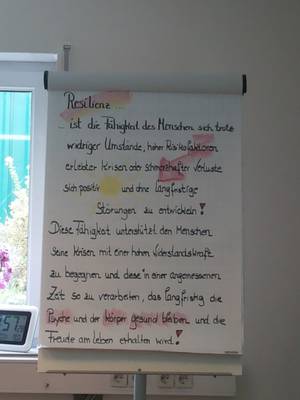 Resilienz ...
... ist die Fähigkeit des Menschen sich trotz
widriger Umstände, hoher Risikofaktoren
erlebter Krisen oder schmerzhafter Verluste
sich positiv und ohne langfristige
Störungen zu entwickeln!
Diese Fähigkeit unterstützt den Menschen
seine Krisen mit einer hohen Widerstandskraft
zu begegnen und diese in einer angemessenen
Zeit so zu verarbeiten, das langfristig die
Psyche und der Körper gesund bleiben und die
Freude am leben erhalten wird!
57